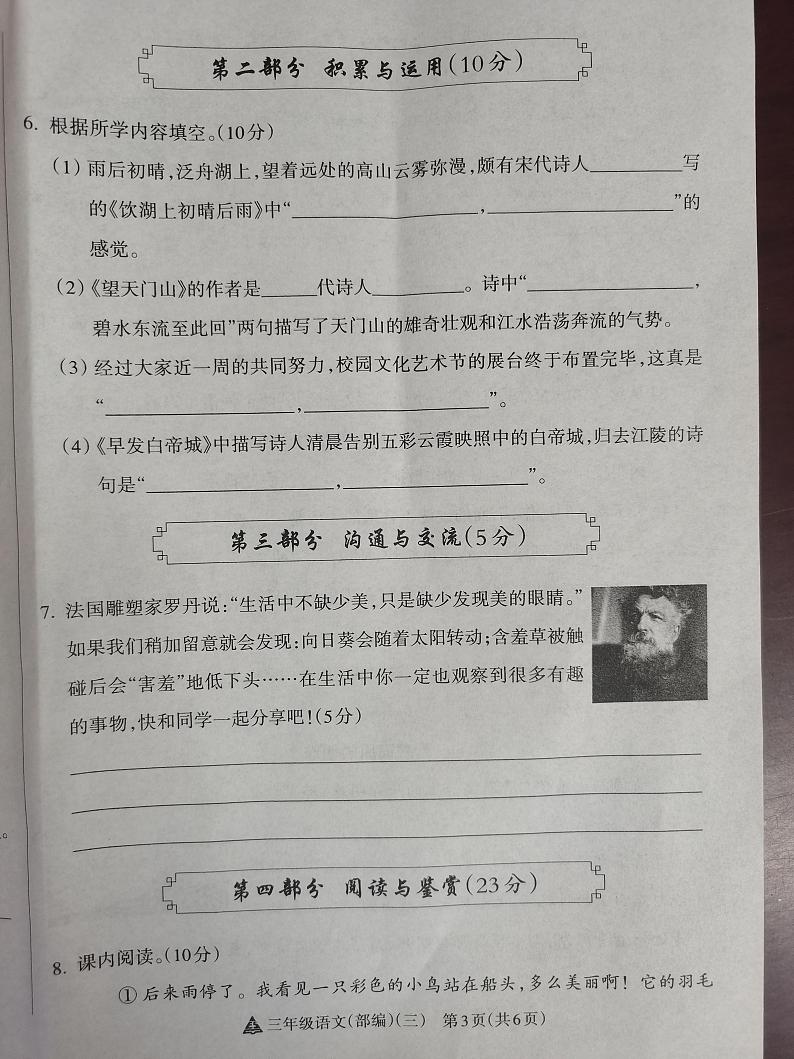 第二部分 积累与运用(10分)
6. 根据所学内容填空。(10分)
(1) 雨后初晴,泛舟湖上,望着远处的高山云雾弥漫,颇有宋代诗人__________写
的《饮湖上初晴后雨》中“____________________,____________________”的
感觉。
(2)《望天门山》的作者是______代诗人__________。诗中“__________________,
碧水东流至此回”两句描写了天门山的雄奇壮观和江水浩荡奔流的气势。
(3) 经过大家近一周的共同努力,校园文化艺术节的展台终于布置完毕,这真是
“____________________,____________________”。
(4)《早发白帝城》中描写诗人清晨告别五彩云霞映照中的白帝城,归去江陵的诗
句是“____________________,____________________”。
第三部分 沟通与交流(5分)
7. 法国雕塑家罗丹说:“生活中不缺少美,只是缺少发现美的眼睛。”
如果我们稍加留意就会发现:向日葵会随着太阳转动;含羞草被触
碰后会“害羞”地低下头……在生活中你一定也观察到很多有趣
的事物,快和同学一起分享吧!(5分)
第四部分 阅读与鉴赏(23分)
8. 课内阅读。(10分)
①后来雨停了。我看见一只彩色的小鸟站在船头,多么美丽啊!它的羽毛
三年级语文(部编)(三) 第3页(共6页)